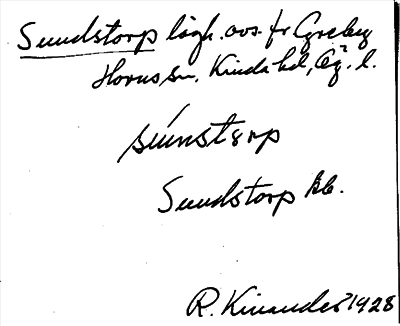 Sundstorp lägh. avs. fr
Horns sn, Kinda hd, Ög. l.
sunstørp
Sundstorp kb.
R. Kinander 1928